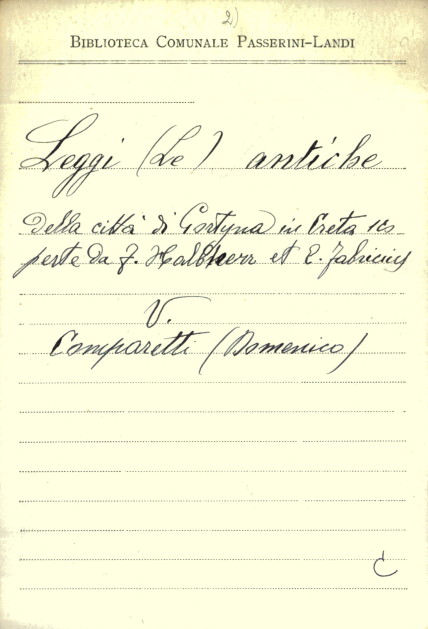 2)
BIBLIOTECA COMUNALE PASSERINI-LANDI
Leggi (Le) antiche
della città di Gortyna in Creta sco
perte da F. Halbherr et E. Fabricius
V.
Comparetti (Domenico)
C